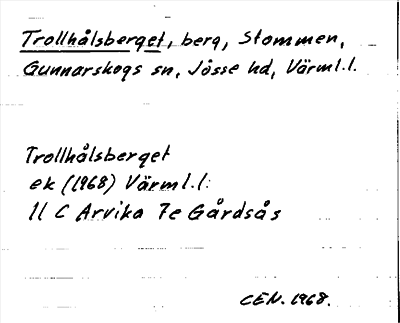 Trollhålsberget, berg, Stommen,
Gunnarskogs sn, Jösse hd, Värml.l.
Trollhålsberget
ek (1968) Värml.l:
11 C Arvika 7e Gårdsås
CEN. 1968.